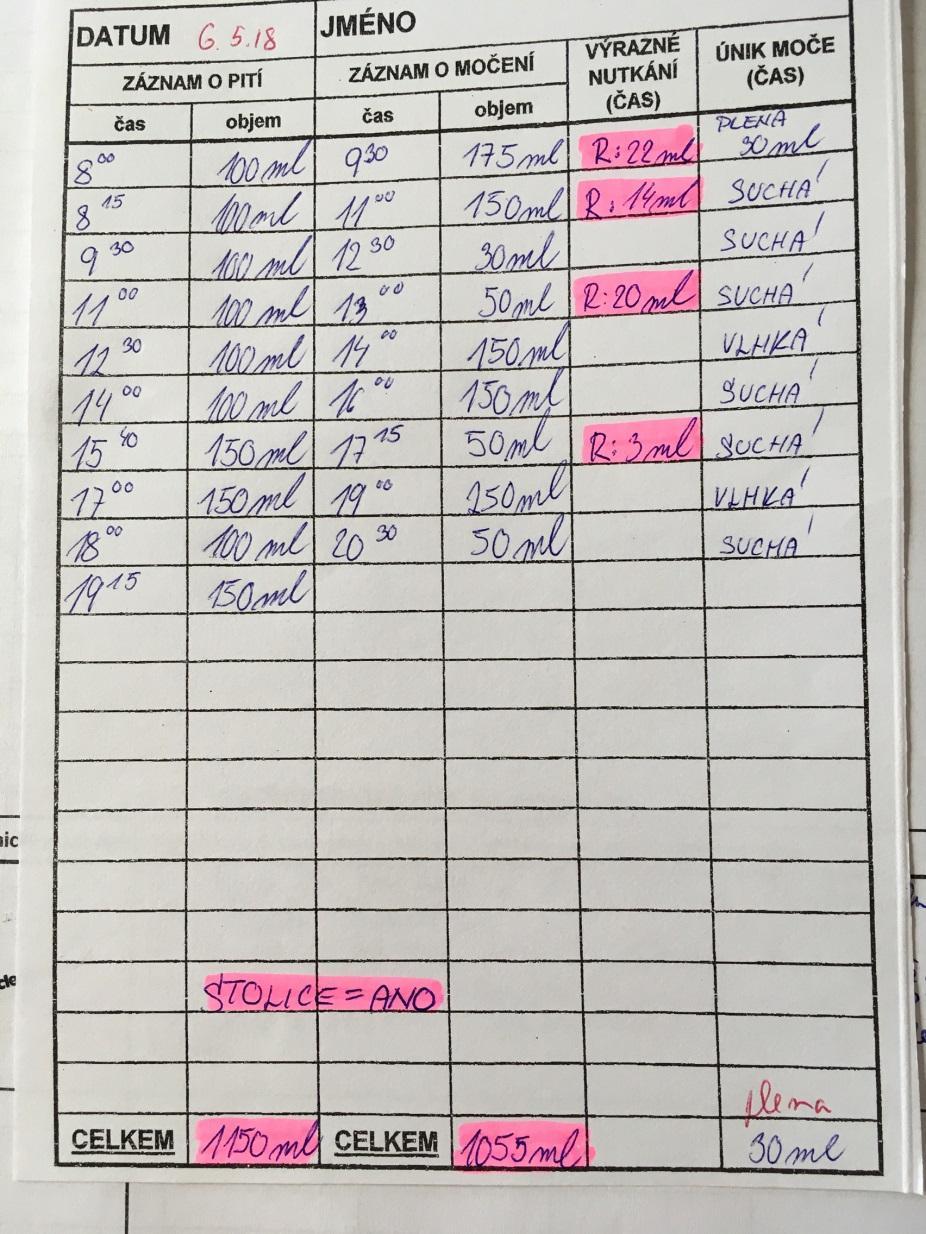 DATUM 6.5.18 JMÉNO
ZÁZNAM O PITÍ ZÁZNAM O MOČENÍ VÝRAZNÉ NUTKÁNÍ (ČAS) ÚNIK MOČE (ČAS)
čas objem čas objem
8 00 100 ml 9 30 175 ml R: 22 ml PLENA 30 ml
8 15 100 ml 11 00 150 ml R: 14 ml SUCHÁ
9 30 100 ml 12 30 30 ml SUCHÁ
11 00 100 ml 13 00 50 ml R: 20 ml SUCHÁ
12 30 100 ml 14 00 150 ml VLHKÁ
14 00 100 ml 16 00 150 ml SUCHÁ
15 40 150 ml 17 15 50 ml R: 3 ml SUCHÁ
17 00 150 ml 19 00 250 ml VLHKÁ
18 00 100 ml 20 30 50 ml SUCHÁ
19 15 150 ml
STOLICE = ANO
plena
CELKEM 1150 ml CELKEM 1055 ml 30 ml